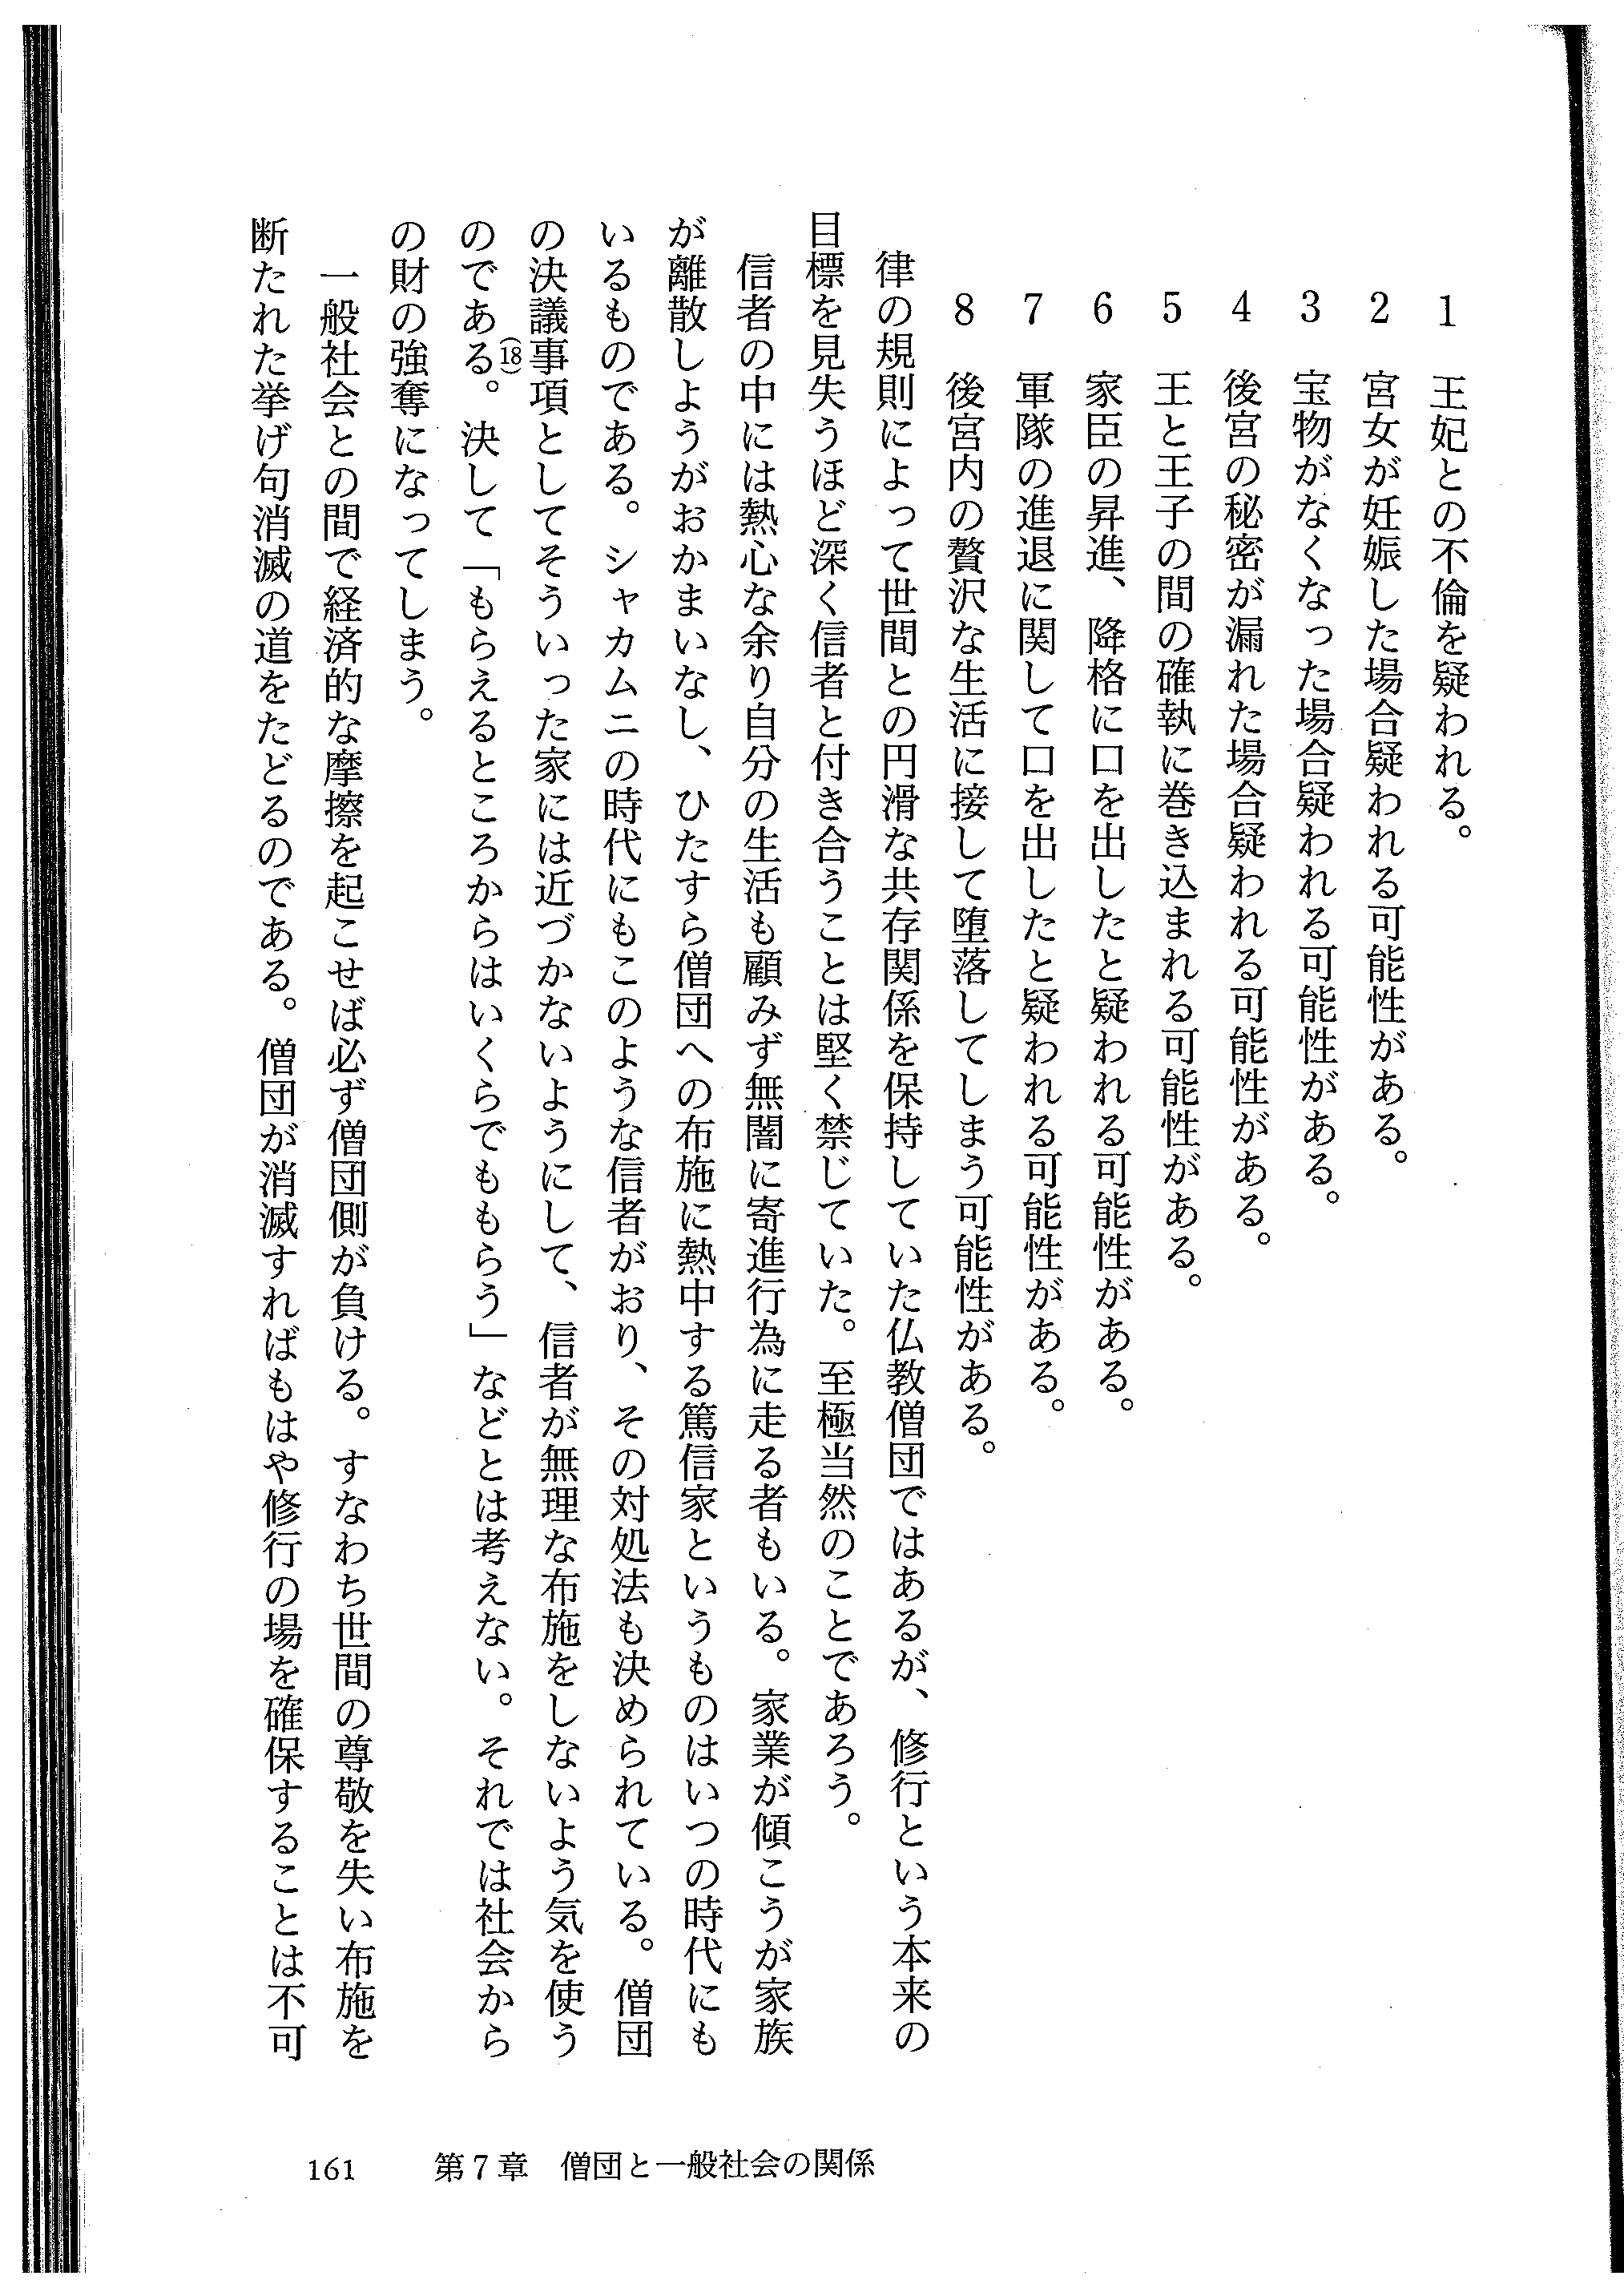 1　王妃との不倫を疑われる。
2　宮女が妊娠した場合疑われる可能性がある。
3　宝物がなくなった場合疑われる可能性がある。
4　後宮の秘密が漏れた場合疑われる可能性がある。
5　王と王子の間の確執に巻き込まれる可能性がある。
6　家臣の昇進、降格に口を出したと疑われる可能性がある。
7　軍隊の進退に関して口を出したと疑われる可能性がある。
8　後宮内の贅沢な生活に接して堕落してしまう可能性がある。
律の規則によって世間との円滑な共存関係を保持していた仏教僧団ではあるが、修行という本来の
目標を見失うほど深く信者と付き合うことは堅く禁じていた。至極当然のことであろう。
信者の中には熱心な余り自分の生活も顧みず無闇に寄進行為に走る者もいる。家業が傾こうが家族
が離散しようがおかまいなし、ひたすら僧団への布施に熱中する篤信家というものはいつの時代にも
いるものである。シャカムニの時代にもこのような信者がおり、その対処法も決められている。僧団
の決議事項としてそういった家には近づかないようにして、信者が無理な布施をしないよう気を使う
のである(18)。決して「もらえるところからはいくらでももらう」などとは考えない。それでは社会から
の財の強奪になってしまう。
一般社会との間で経済的な摩擦を起こせば必ず僧団側が負ける。すなわち世間の尊敬を失い布施を
断たれた挙げ句消滅の道をたどるのである。僧団が消滅すればもはや修行の場を確保することは不可
161　第7章　僧団と一般社会の関係